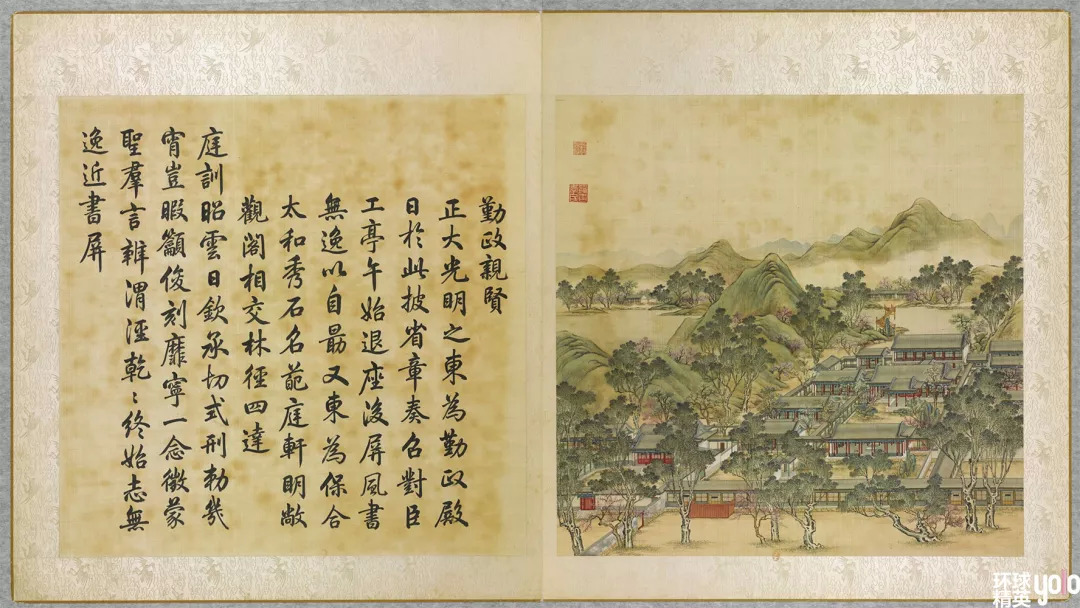 勤政親賢
正大光明之東為勤政殿
日於此披省章奏召對臣
工亭午始退座後屏風書
無逸以自勗又東為保合
太和秀石名葩庭軒明敞
觀閣相交林徑四達
庭訓昭雲日欽承切式刑勅幾
宵豈暇籲俊刻靡寧一念徵蒙
聖羣言辨渭涇乾〻終始志無
逸近書屏
环球
精英
yolo